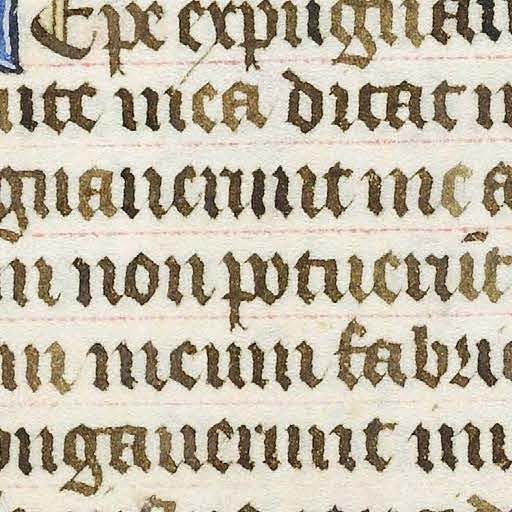 Epe expugnau
uite mea dicat n
gnauerunt me a
m non potueru̅t
um meum fabric
ongauerunt mi